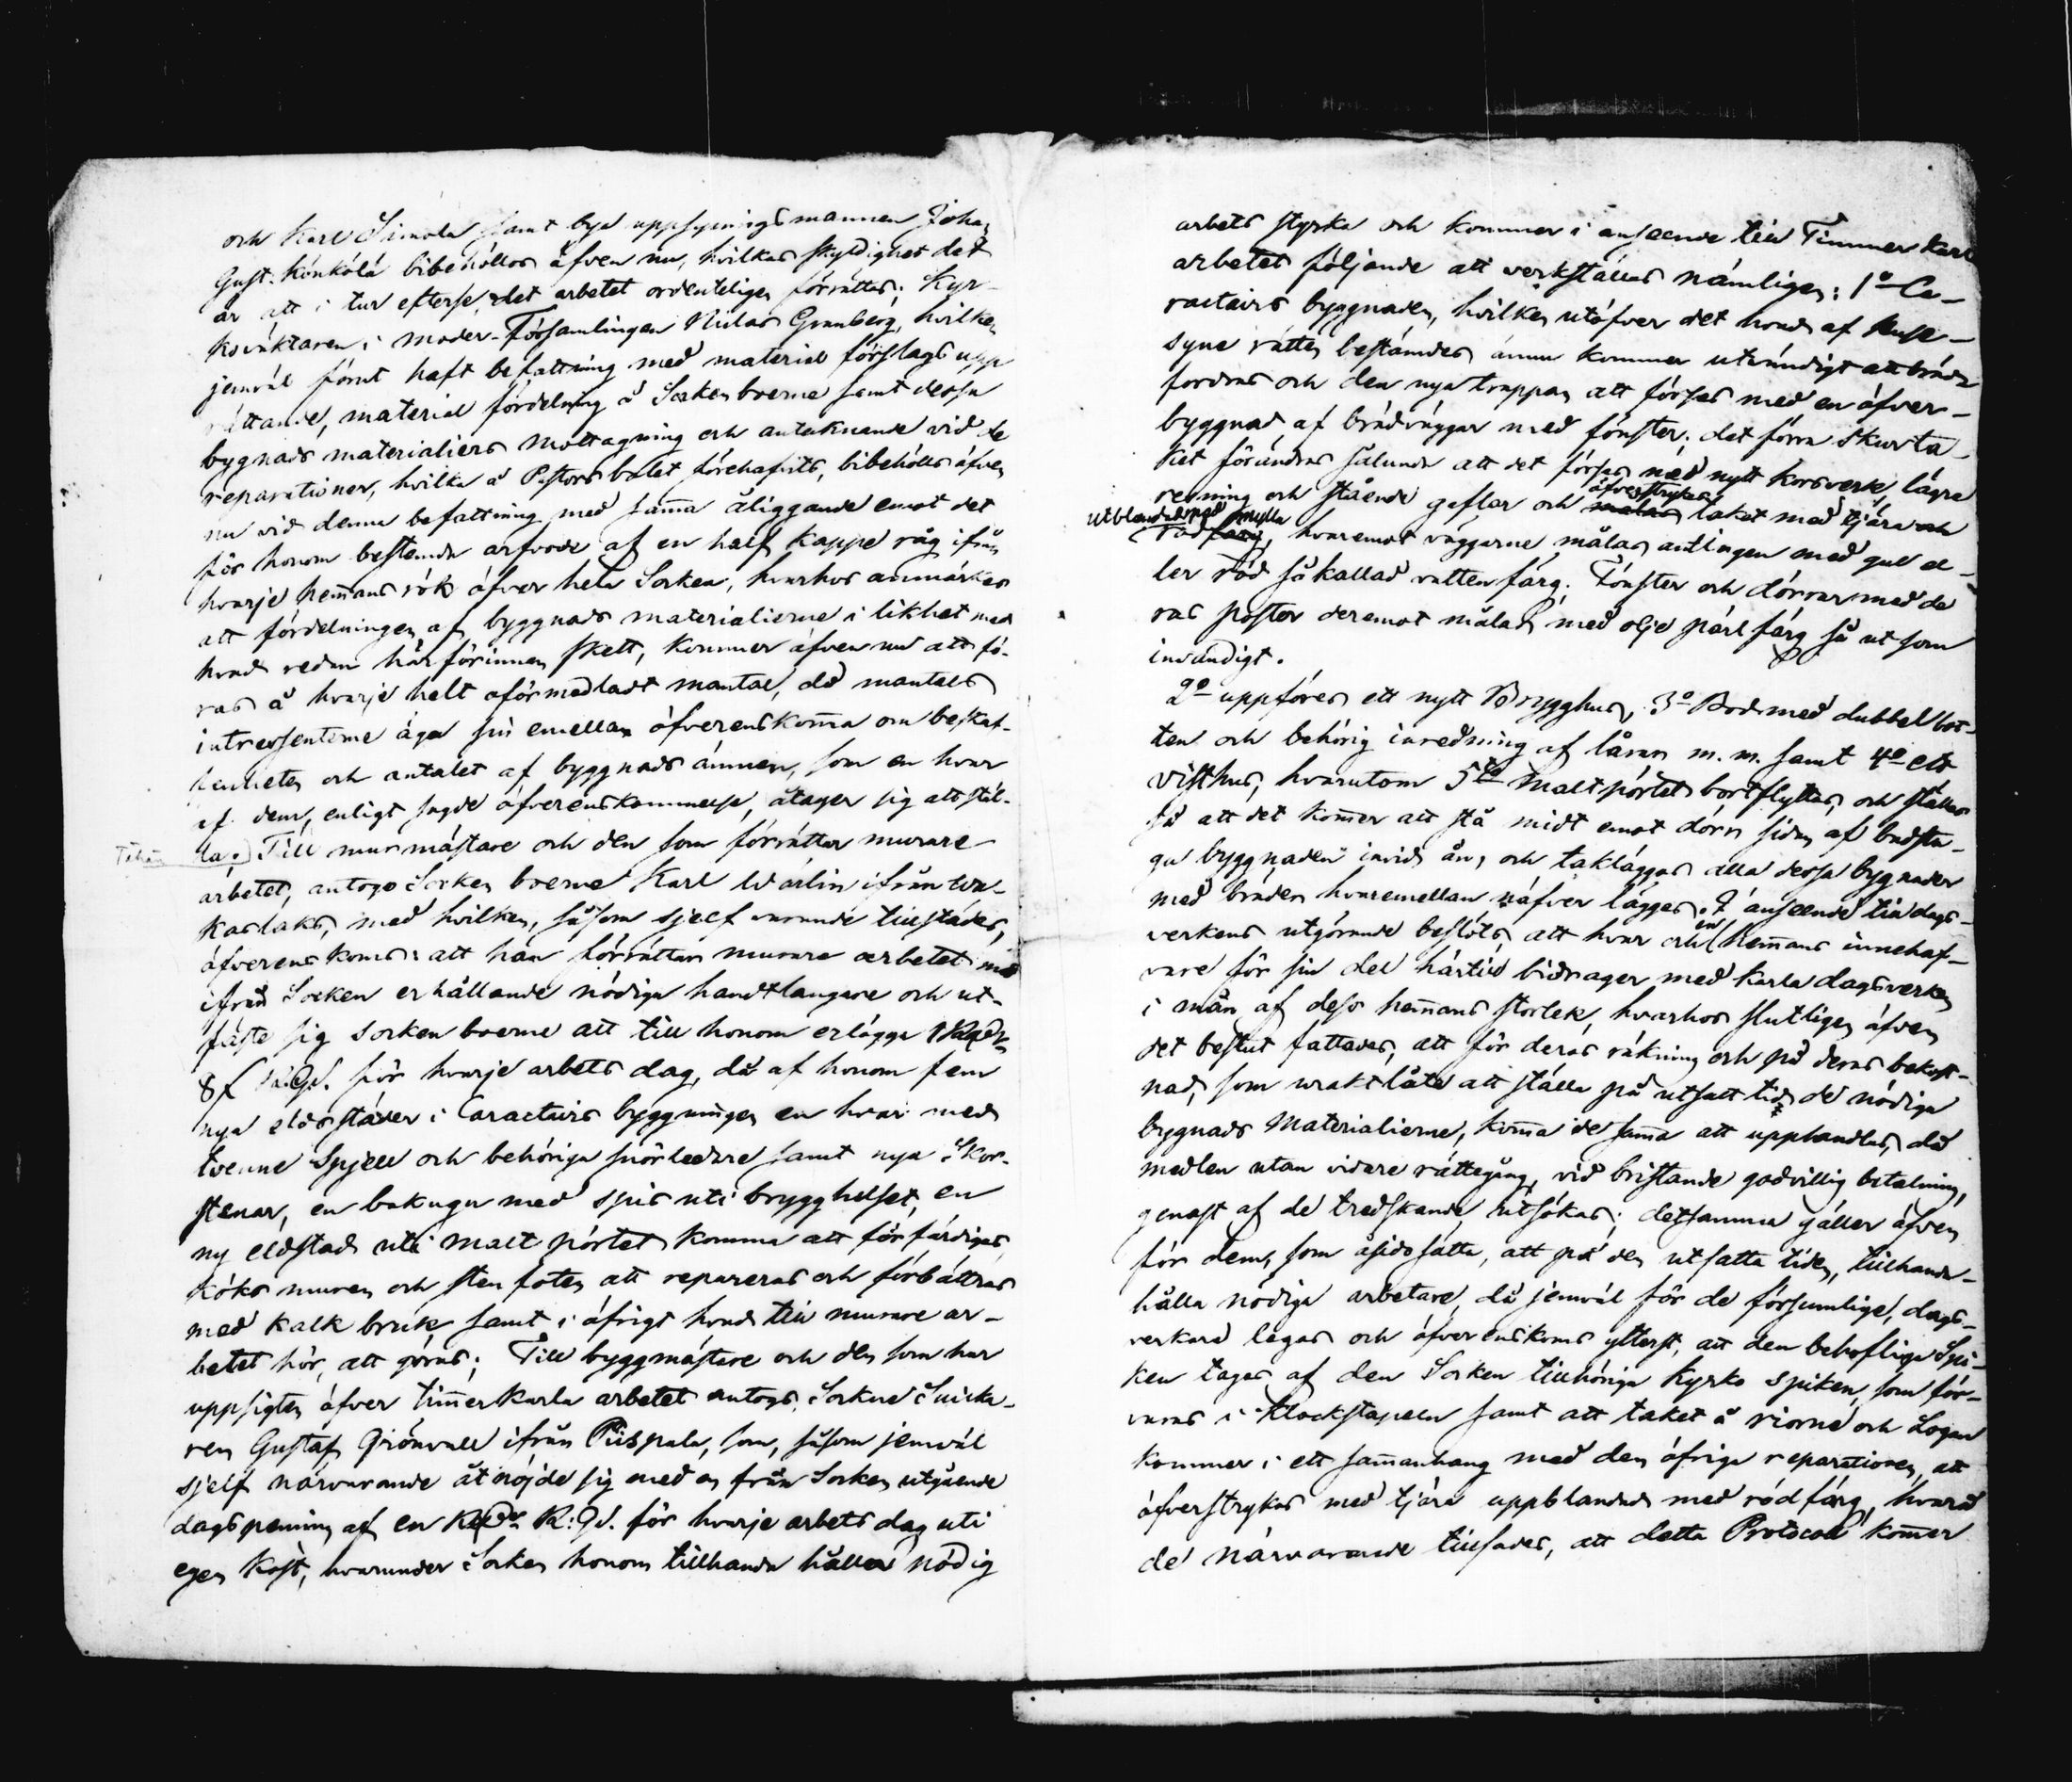 och Karl Simola samt bya uppsyningsmannen Joha
Gust. Könkölä bibehöllos äfven nu, hvilkas skyldighet det
är att i tur efterse, det arbetet ordenteligen förrättas; Kyr-
ko väktaren i moder-Församlingen Niclas Granberg, hvilken
jemväl förut haft befattning med material förslags upp
rättande, material fördelning å Sockenboerne samt dessa
bygnads materialiers mottagning och antecknande vid de
reparationer, hvilka å Pastorsbolet förehafvits, bibehölls äfven
nu vid denna befattning med samma åliggande emot det
för honom bestämda arfvode af en half kappe råg ifrån
hvarje hemmans rök öfver hela Socken, hvarhos anmärkes
att fördelningen af byggnads materialierne i likhet med
hvad redan härförinnan skett, kommer äfven nu att fö-
ras å hvarje helt oförmedladt mantal, då mantals
intressenterne äga sin emellan öfverenskomma om beskaf-
fenheten och antalet af byggnads ämnen, som en hvar
af dem, enligt sagde öfverenskommelse, åtager sig att stäl-
la. Till murmästare och den som förrättar murare
arbetet, antogo Socken boerne Karl Warlin ifrån
karlaks, med hvilken, såsom sjelf varande tillstädes,
öfverens koms: att han förrättar murare arbetet med
ifrån Socken erhållande nödiga handtlangare och ut-
fäste sig Socken boerne att till honom erlägga 1
8 för hvarje arbets dag, då af honom fem
nya eldstäder i Caractairs byggningen en hvar med
tvenne Spjell och behöriga snörledare samt nya skor-
stenar, en bakugn med spis uti brygghuset, en
ny eldstad uti malt pörtet komma att förfärdigas
köks muren och sten foten att repareras och förbättras
med kalk bruk samt i öfrigt hvad till murare ar-
betet hör, att göras; Till byggmästare och den som har
uppsigten öfver timmerkarla arbetet antogs Sockne Snicka-
ren Gustaf Grönvall ifrån Piispala, som, såsom jemväl
sjelf närvarande åtnöjde sig med en från Socken utgående
dagspenning af en R:Gd. för hvarje arbets dag uti
egen kost, hvarunder Socken honom tillhanda håller nödig
arbets styrka och kommer i anseende till Timmer karl
arbetet följande att verkställas nämligen: 1o Ca-
ractairs byggnaden, hvilken utöfver det hvad af Huse-
syne rätten bestämdes ännu kommer utvändigt att bräd
fordras och den nya trappan att förses med en öfver-
byggnad af brädväggar med fönster; det förra skurta-
ket förändras sålunda att det förses med nytt korsverk lägre
resning och stående gaflar och öfverstrykes taket med tjära och
utblandad röd mylla
hvaremot väggarne målas antingen med gul el-
ler röd så kallad vatten färg; Fönster och dörrar med de
ras poster deremot målas med olje pärl färg så ut som
invändigt.
2o uppföres ett nytt Brygghus, 3o Bod med dubbel bot-
ten och behörig inredning af lårar m. m. samt 4o ett
visthus, hvarutom 5to Malt pörtet bortflyttas, och ställes
så att det kommer att stå midt emot dörr sidan af badstu-
gu byggnaden invid ån, och takläggas alla dessa bygnader
med bräder hvaremellan näfver lägges. I anseende till dags-
verkens utgörande beslöts, att hvar och en hemmans innehaf-
vare för sin del härtill bidrager med karla dagsverken
i mån af dess hemmans storlek, hvarhos slutligen äfven
det beslut fattades, att för deras räkning och på deras bekost-
nad, som uraktlåta att ställa på utsatt tid de nödiga
bygnads Materialierne, komma de samma att upphandlas, då
medlen utan vidare rättegång, vid bristande godvillig betalning,
genast af de tredskande utsökas; detsamma gäller äfven
för dem, som åsidosätta, att på den utsatta tiden, tillhanda-
hålla nödiga arbetare, då jemväl för de försumlige, dags-
verkare legas och öfverenskoms ytterst, att den behöfliga Spi-
ken tages af den Socken tillhöriga kyrko spiken, som för-
varas i Klockstapeln samt att taket å riorne och Logan
kommer i ett sammanhang med den öfriga reparationen att
öfverstrykas med tjära uppblandad med rödfärg, hvarå
de närvarande tillsades, att detta Protocoll kommer